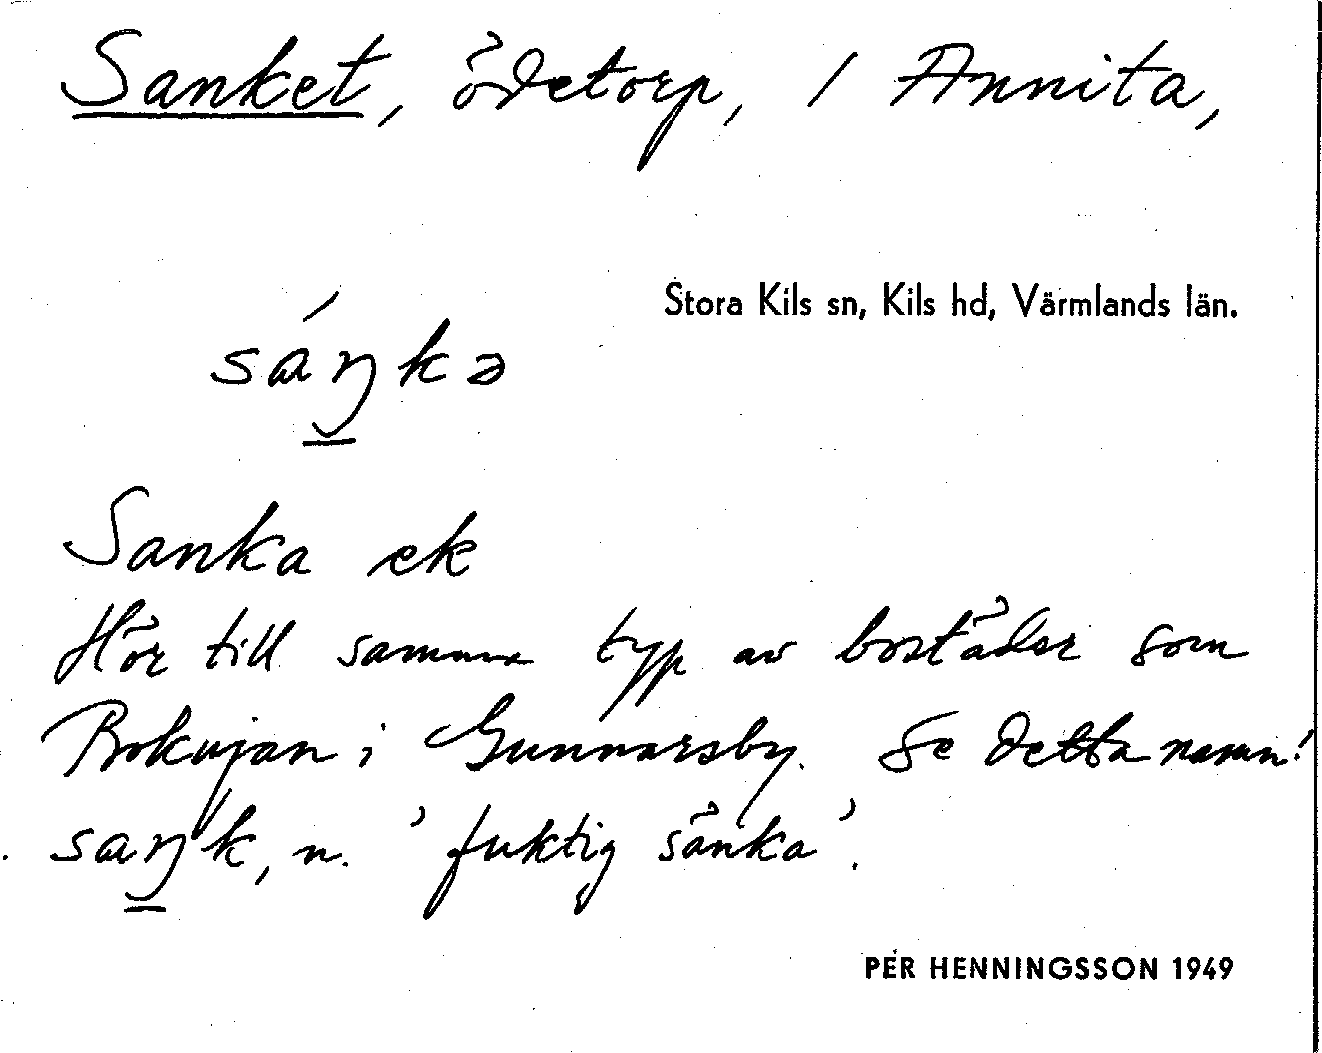 Sanket, ödetorp, / Annita,
Stora Kils sn, Kils hd, Värmlands län.
sáŋkə
Sanka ek
Hör till samma typ av bostäder som
Bokujan i Gunnarsby. Se detta namn!
saŋk, n. 'fuktig sänka'.
PER HENNINGSSON 1949